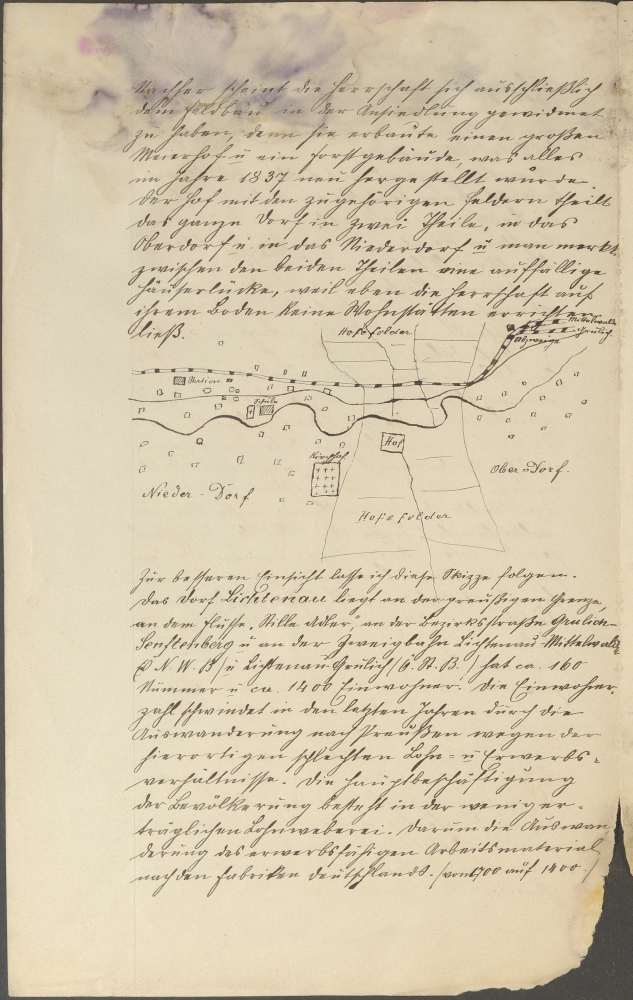 Nachher scheint die Herrschaft sich ausschließlich
dem Feldbau in der Ansiedlung gewidmet
zu haben, denn sie erbaute einen großen
Meierhof u ein Forstgebäude, was alles
im Jahre 1837 neu hergestellt wurde.
Der Hof mit den zugehörigen Feldern theilt
das ganze Dorf in zwei Theile, in das
Oberdorf u. in das Niederdorf u man merkt
zwischen den beiden Theilen eine auffällige
Häuserlücke, weil eben die Herrschaft auf
ihrem Boden keine Wohnstätten errichten
ließ.
Hofefelder
Mittelwalde
Grulich
Abzweige
Station
Schule
Hof
Kirchhof
Ober-Dorf.
Nieder-Dorf
Hofefelder
Zur besseren Einsicht lasse ich diese Skizze folgen.
Das Dorf Lichtenau liegt an der preußigen Grenze,
an dem Flüße „Stille Adler", an der Bezirksstraße Grulich-
Senftenberg u an der Zweigbahn Lichtenau-Mittelwalde
(Ö. N. W. B.) u Lichtenau-Grulich (Ö. St. B.) hat ca. 160
Nummer u ca. 1400 Einwohner. Die Einwohner-
zahl schwindet in den letzten Jahren durch die
Auswanderung nach Preußen wegen der
hierortigen schlechten Lohn- u Erwerbs-
verhältnisse. Die Hauptbeschäftigung
der Bevölkerung besteht in der wenig er-
träglichen Lohnweberei. Darum die Auswan
derung des erwerbsfähigen Arbeitsmaterial
nach den Fabriken Deutschlands. (von 1700 auf 1400.)